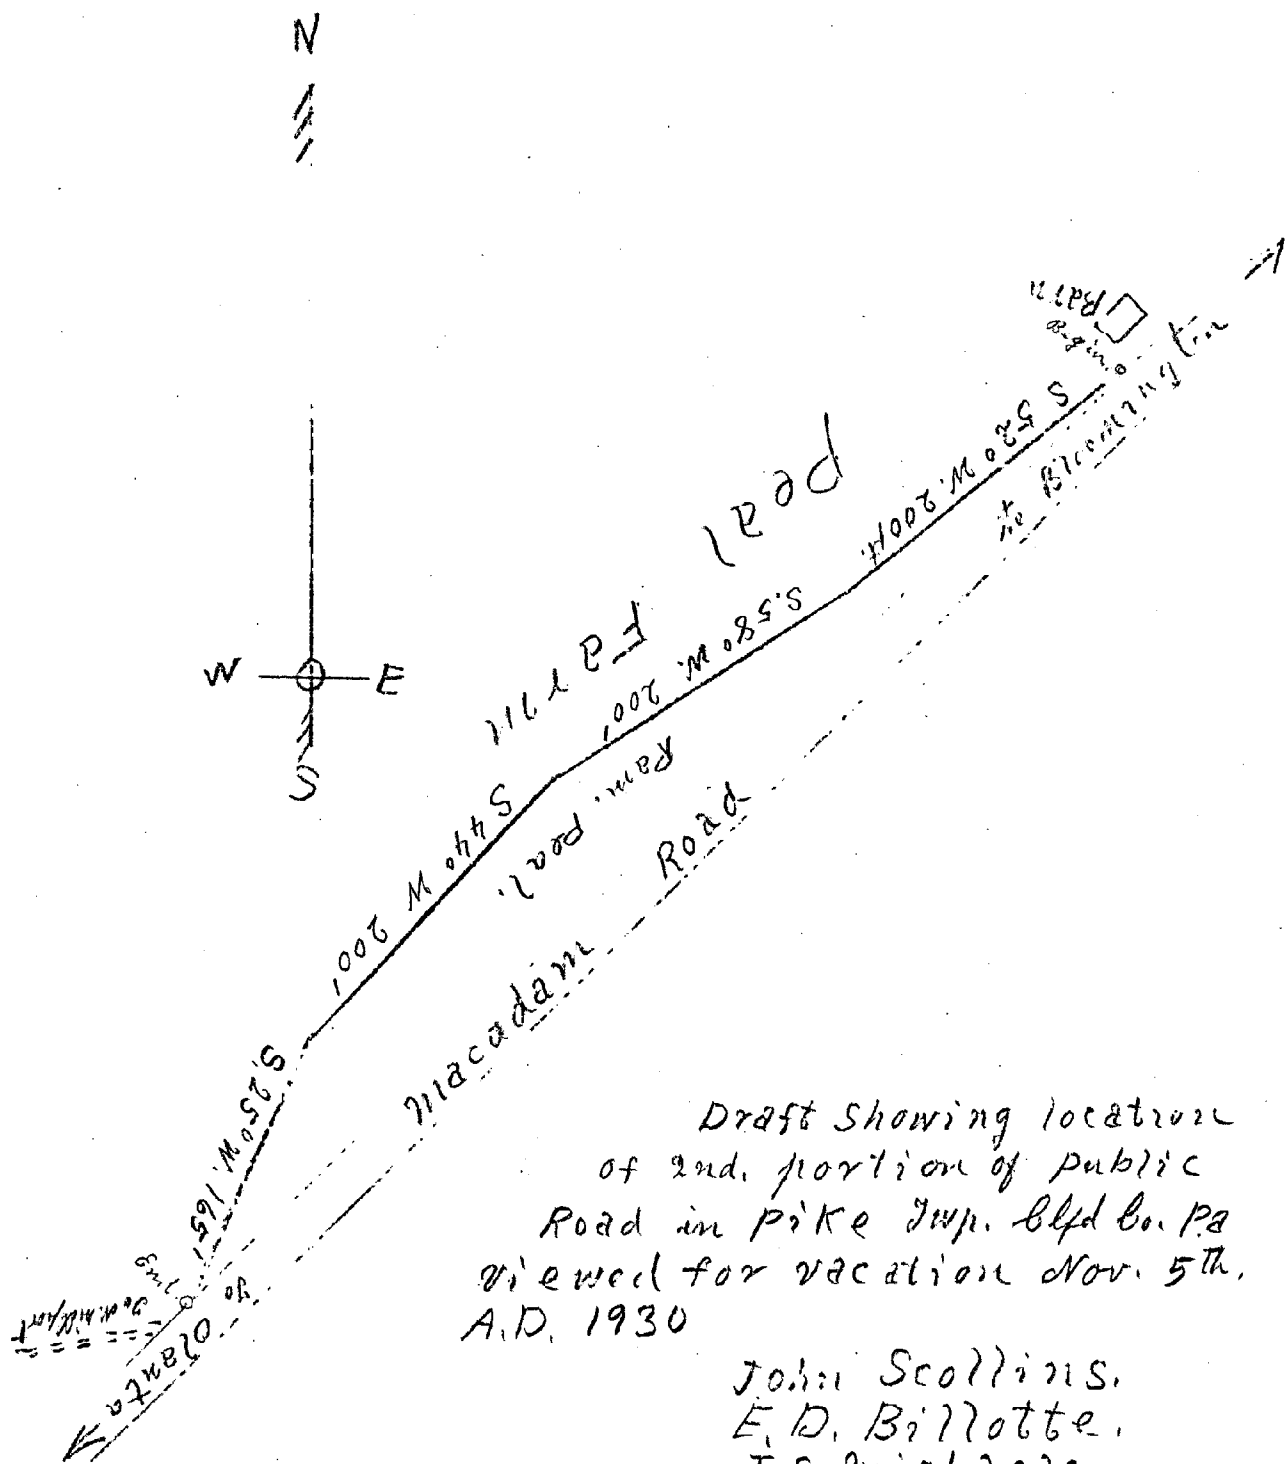 N
Barn
Begin
S 52° W. 200 ft.
to Bloomington
Peal
Farm
S. 58° W. 200'
Pam. Peal.
W
E
S
S 44° W 200'
Macadam Road
S. 25° W. 165'
To
Olanta
Draft Showing location
of 2nd. portion of public
Road in Pike Twp. Clfd Co. Pa
viewed for vacation Nov. 5th.
A.D. 1930
John Scollins.
E. D. Billotte.